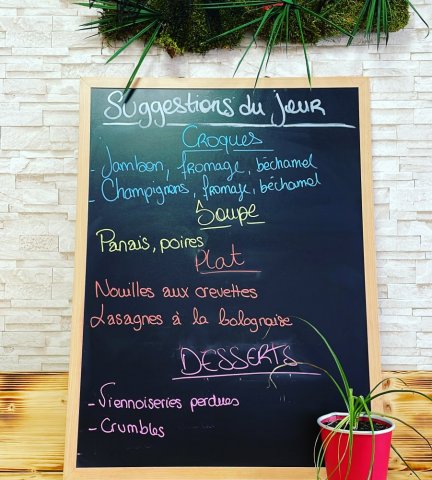 Suggestions du jeur
Croques
- Jambon, fromage, béchamel
- Champignons, fromage, béchamel
Soupe
Panais, poires
Plat
Nouilles aux crevettes
Lasagnes à la bolognaise
DESSERTS
- Viennoiseries perdues
- Crumbles